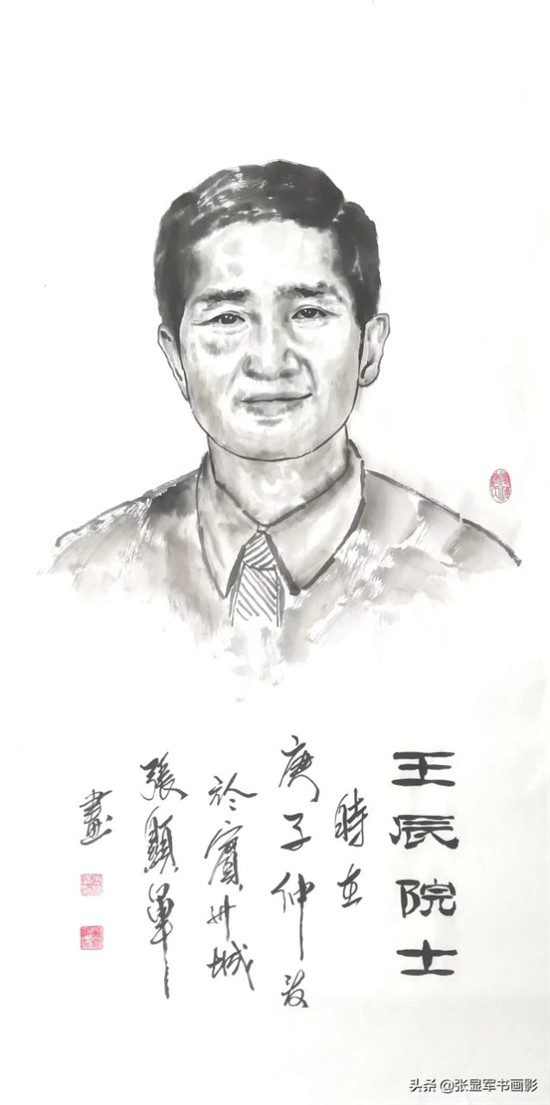 王辰院士
時在
庚子仲夏
於賓州城
張顯軍
畫
头条 @张显军书画影